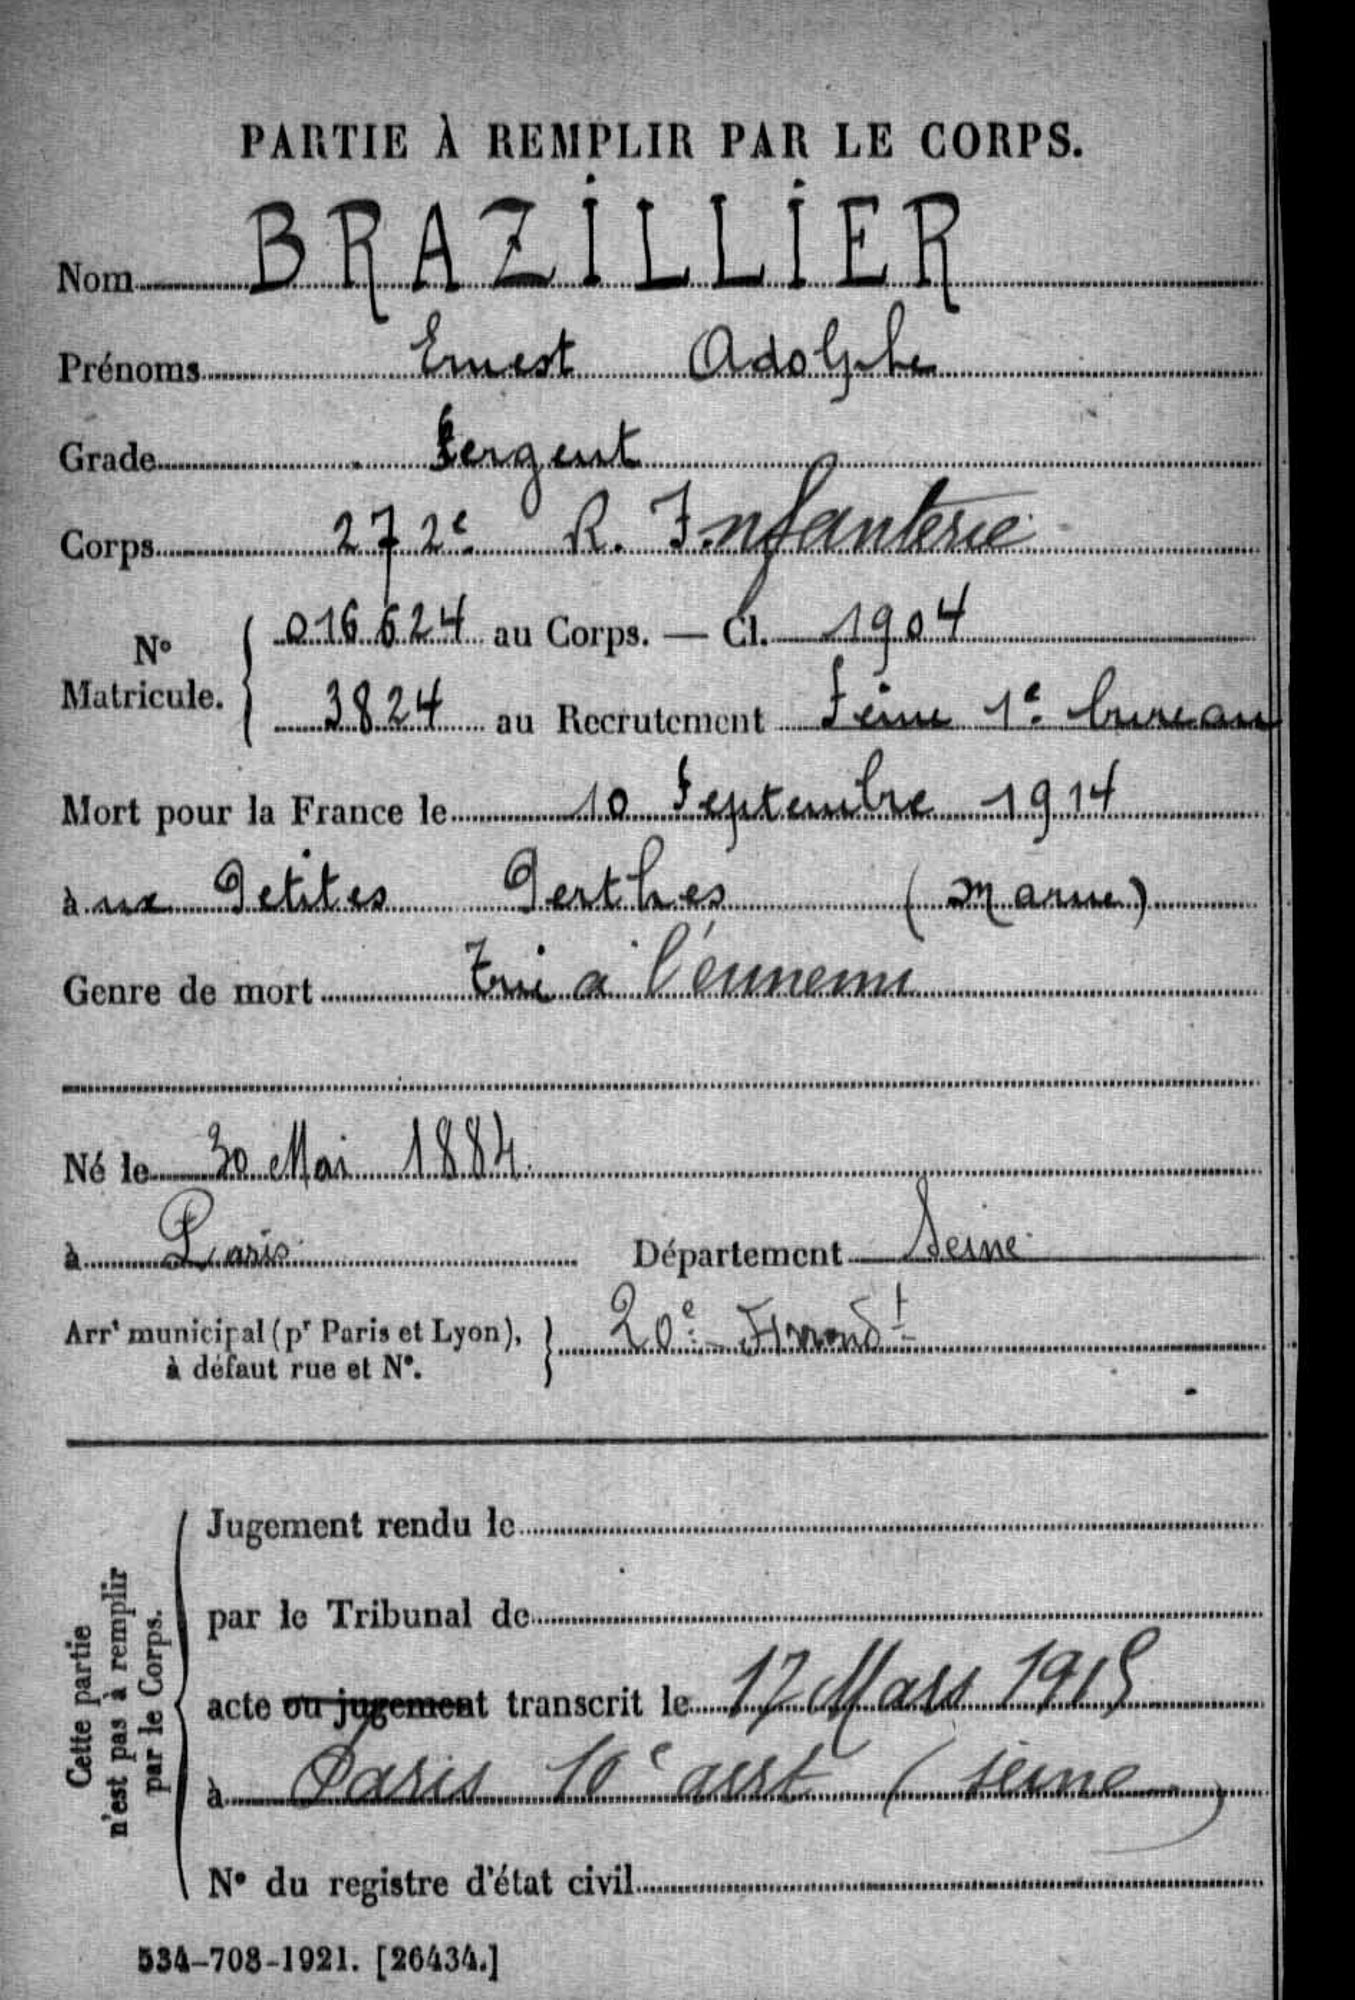 PARTIE À REMPLIR PAR LE CORPS.
Nom BRAZILLIER
Prénoms Ernest Adolphe
Grade Sergent
Corps 272e R. Infanterie
N° Matricule.
016624 au Corps. — Cl. 1904
3824 au Recrutement Seine 1e bureau
Mort pour la France le 10 Septembre 1914
à ux Petites Perthes (Marne)
Genre de mort Tué à l'ennemi
Né le 30 Mai 1884.
à Paris Département Seine
Arrt municipal (pr Paris et Lyon), 20e Arrondt
à défaut rue et N°.
Cette partie
n'est pas à remplir
par le Corps.
Jugement rendu le
par le Tribunal de
acte ou jugement transcrit le 17 Mars 1915
à Paris 10e arrt (Seine)
N° du registre d'état civil
534-708-1921. [26434.]